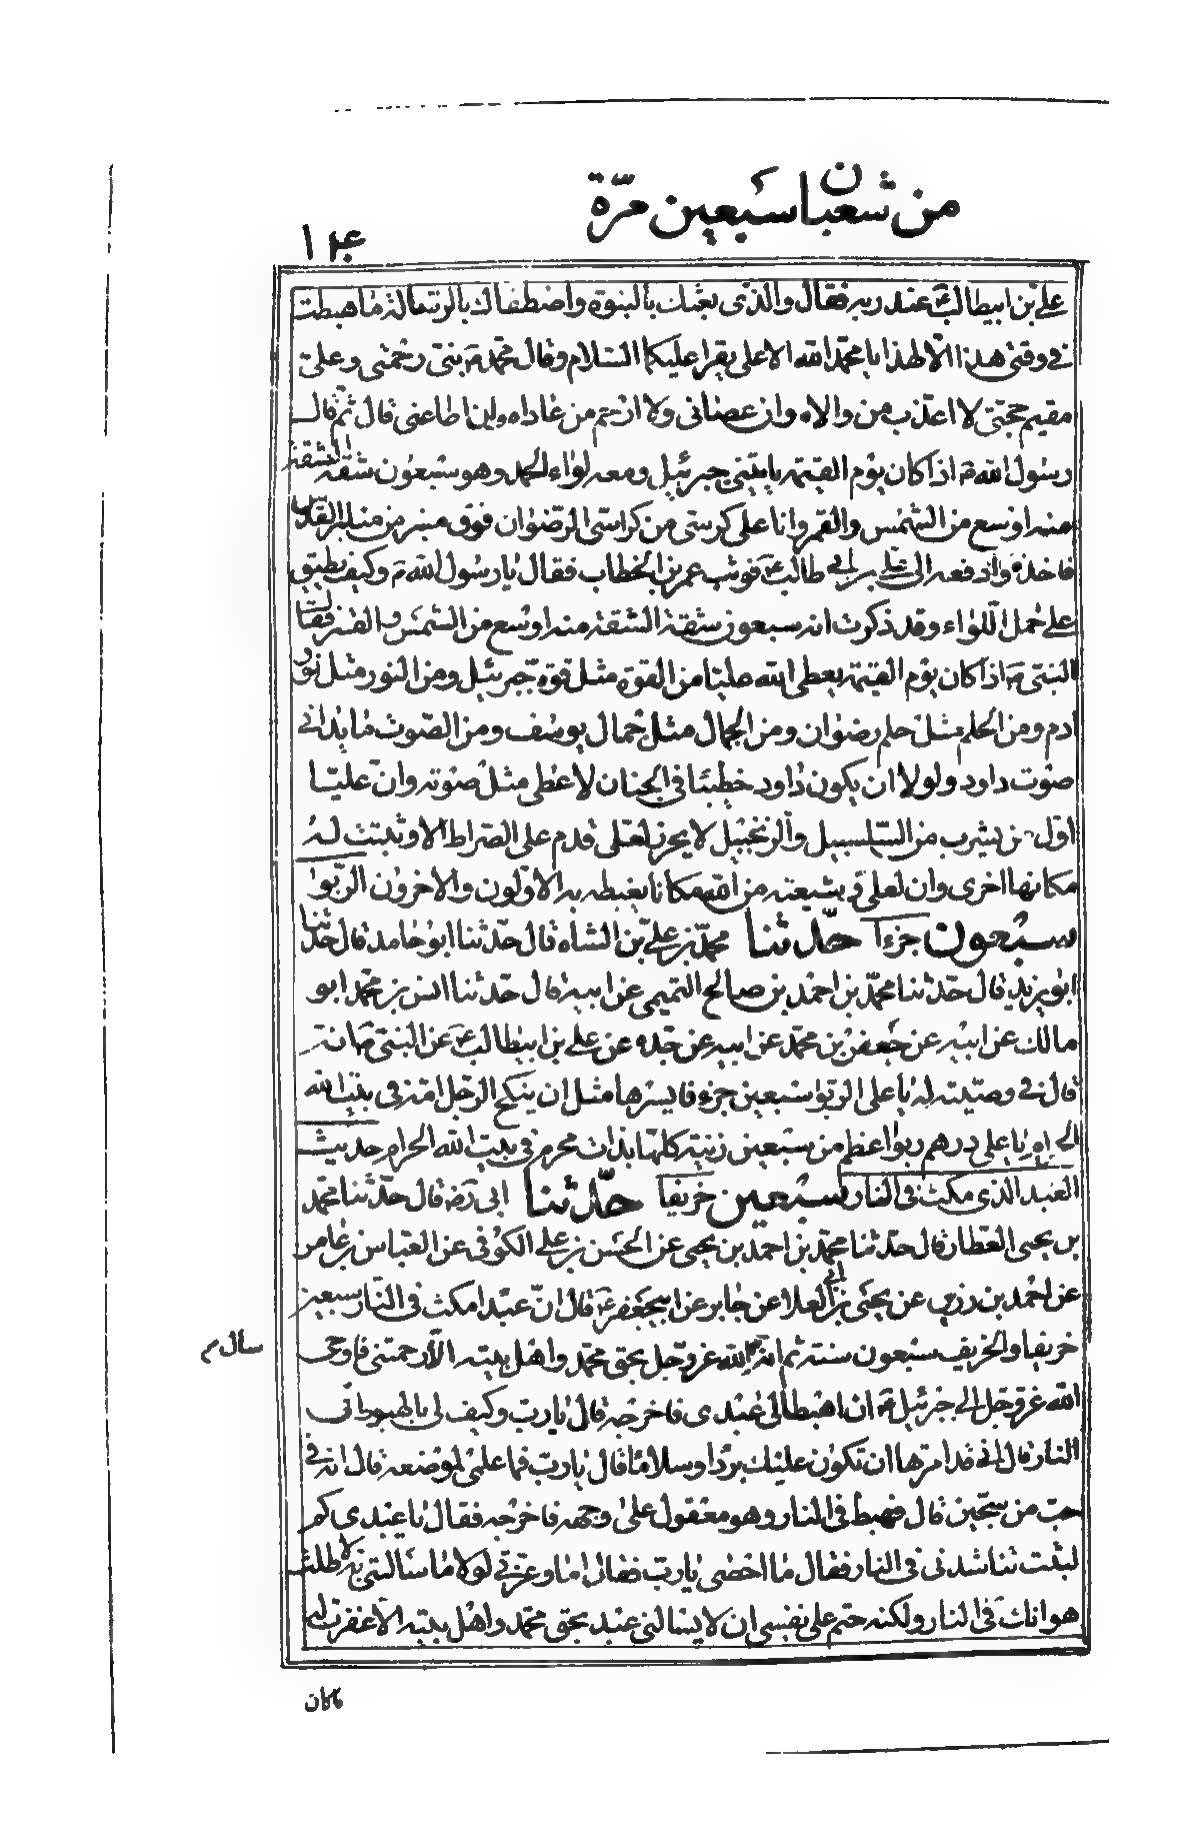 من شعبان سبعين مرّة
١٢٤
علي بن ابيطالب ع عند ربه فقال والذي بعثك بالنبوة واصطفاك بالرسالة ما هبطت
في وقتي هذا الا لهذا يا محمد الله الاعلى يقرا عليكما السّلام وقال محمد ص بنيّ رحمتي وعلي
مقيم حجّتي لا اعذّب من والاه وان عصاني ولا ارحم من عاداه وان اطاعني قال ثم قال
رسول الله ص اذا كان يوم القيمة ياتيني جبرئيل ومعه لواء الحمد وهو سبعون شقه الشقة
منه اوسع من الشمس والقمر وانا على كرسي من كراسي الرضوان فوق منبر من منابر القدس
فاخذه وادفعه الى علي بن ابي طالب ع فوثب عمر بن الخطاب فقال يا رسول الله ص وكيف يطيق
علي حمل اللواء وقد ذكرت انه سبعون شقة الشقة منه اوسع من الشمس والقمر فقال
النبي ص اذا كان يوم القيمة يعطى الله عليا من القوة مثل قوة جبرئيل ومن النور مثل نور
ادم ومن الحلم مثل حلم رضوان ومن الجمال مثل جمال يوسف ومن الصّوت ما يدانى
صوت داود ولولا ان يكون داود خطيبا في الجنان لاعطى مثل صوته وانّ عليّا
اوّل من يشرب من السّلسبيل والزنجبيل لا يجوز لعلي قدم على الصراط الا وثبتت له
مكانها اخرى وان لعلي وشيعته من الله مكانا يغبطه به الاوّلون والاخرون الربوا
سبعون جزءا حدّثنا محمد بن علي بن الشاه قال حدّثنا ابو حامد قال حدثنا
ابو يزيد قال حدّثنا محمد بن احمد بن صالح التميمي عن ابيه قال حدّثنا انس بن محمد ابو
مالك عن ابيه عن جعفر بن محمد عن ابيه عن جدّه عن علي بن ابيطالب ع عن النبي ص انه
قال في وصيّته له يا علي الربوا سبعين جزء فايسرها مثل ان ينكح الرّجل امّه في بيت الله
الحرام يا علي درهم ربوا اعظم من سبعين زنية كلها بذات محرم في بيت الله الحرام حديث
العبد الذي مكث في النار سبعين خريفا حدّثنا ابي رض قال حدّثنا محمد
بن يحيى العطار قال حدثنا محمد بن احمد بن يحيى عن الحسن بن علي الكوفي عن العباس بن عامر
عن احمد بن رزين عن يحيى بن ابي العلا عن جابر عن ابي جعفر ع قال انّ عبدا مكث في النّار سبعين
خريفا والخريف سبعون سنة ثم انه سال الله عز وجل بحق محمد واهل بيته الّا رحمتني فاوحى
سال م
الله عز وجل الى جبرئيل ع ان اهبط الى عبدي فاخرجه قال يا ربّ وكيف لي بالهبوط في
النار قال اني قد امرتها ان تكون عليك بردا وسلاما قال يا ربّ فما علمي بموضعه قال انه في
جب من سجين قال فهبط في النار وهو معقول على وجهه فاخرجه فقال يا عبدي كم
لبثت تناشدني في النار فقال ما احصى يا ربّ فقال اما وعزّتي لولا ما سالتني به لاطلت
هوانك في النار ولكنه حتم على نفسي ان لا يسالني عبد بحق محمد واهل بيته الا غفرت له
ما كان